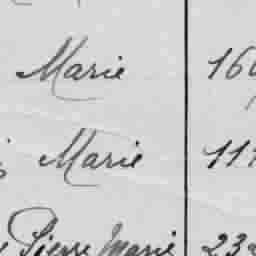 Marie 160
Marie 111
Pierre Marie 232